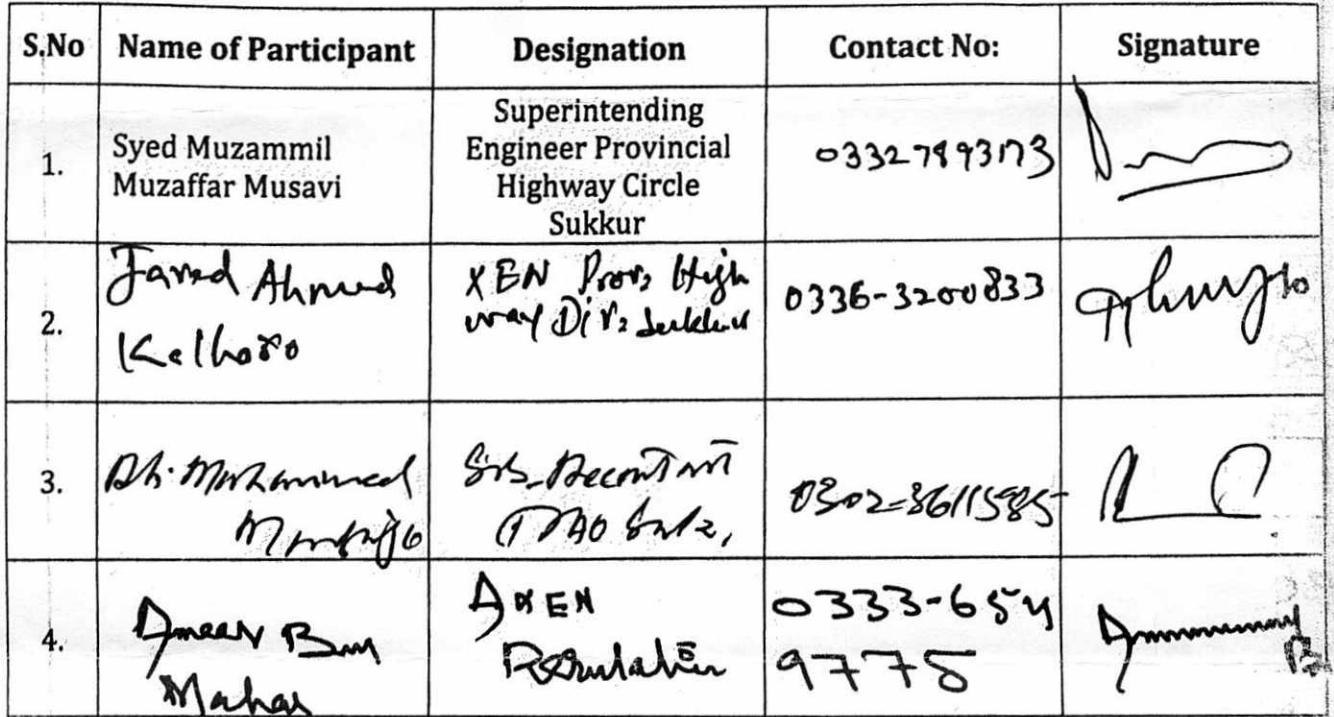 S.No Name of Participant Designation Contact No: Signature
1. Syed Muzammil Muzaffar Musavi Superintending Engineer Provincial Highway Circle Sukkur 03327893173
2. Javed Ahmed Kalhoro XEN Prov: High way Div: Sukkur 0336-3200833
3. Muhammad 0302-3611585
4. Ameer Bux Mahar AXEN 0333-654 9775